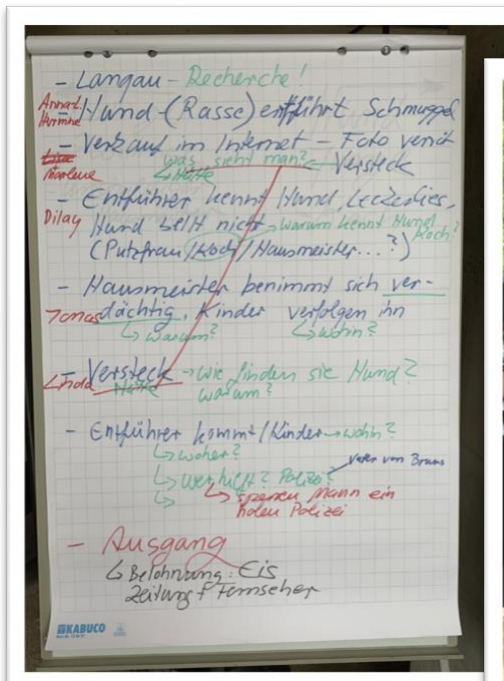 - Langau - Recherche!
Hermine - Hund (Rasse) entführt Schmuggel
- Verkauf im Internet - Foto verrät
Marlene was sieht man? Versteck
↳ Hütte
- Entführer kennt Hund, Leckerlies,
Dilay Hund bellt nicht → warum kennt Hund Koch?
(Putzfrau / Koch / Hausmeister...?)
- Hausmeister benimmt sich ver-
Jonas dächtig, Kinder verfolgen ihn
↳ warum? ↳ wohin?
Linda - Versteck → wie finden sie Hund?
Hütte warum?
- Entführer kommt / Kinder → wohin?
↳ woher?
↳ wer hilft? Polizei? Vater von Bruno
↳ ↳ sperren Mann ein
holen Polizei
- Ausgang
↳ Belohnung: Eis
Zeitung + Fernseher
KABUCO